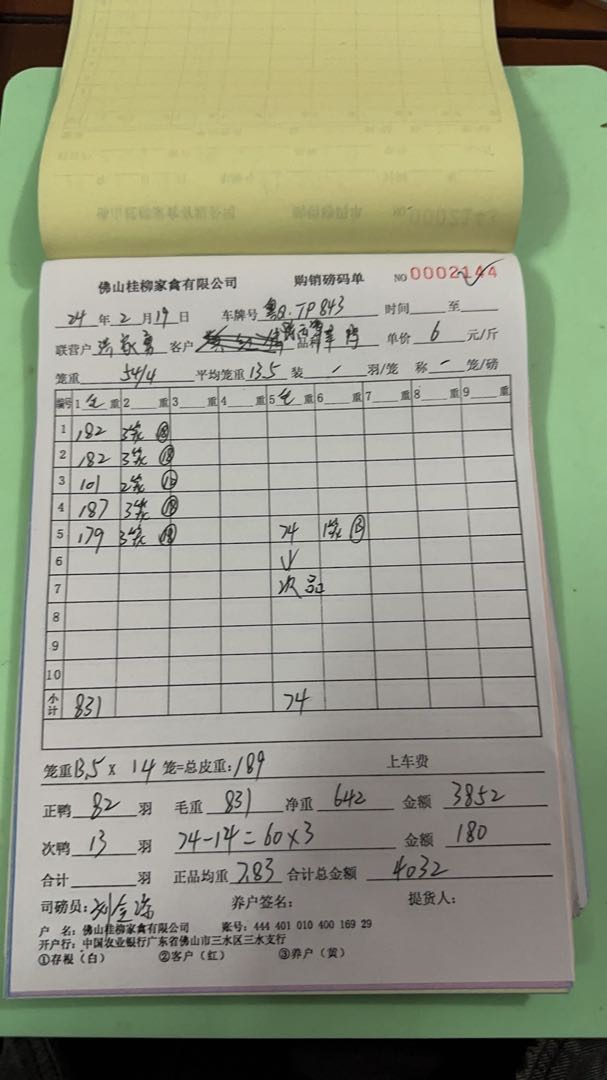 佛山桂柳家禽有限公司 购销磅码单 NO 0002144
24年2月19日 车牌号 粤Q.TP843 时间 至
联营户 客户 品种 单价 6 元/斤
笼重 54/4 平均笼重 13.5 装 - 羽/笼 称 - 笼/磅
编号 1 毛重 2 重 3 重 4 重 5 毛重 6 重 7 重 8 重 9 重
1 182 3笼 ⑱
2 182 3笼 ⑱
3 101 2笼
4 187 3笼 ⑱
5 179 3笼 ⑱ 74 1笼 ⑬
6 ↓
7 次品
8
9
10
小计 831 74
笼重 13.5 x 14 笼=总皮重: 189 上车费
正鸭 82 羽 毛重 831 净重 642 金额 3852
次鸭 13 羽 74-14=60x3 金额 180
合计 羽 正品均重 7.83 合计总金额 4032
司磅员: 养户签名: 提货人:
户 名: 佛山桂柳家禽有限公司 账号: 444 401 010 400 169 29
开户行: 中国农业银行广东省佛山市三水区三水支行
①存根（白） ②客户（红） ③养户（黄）